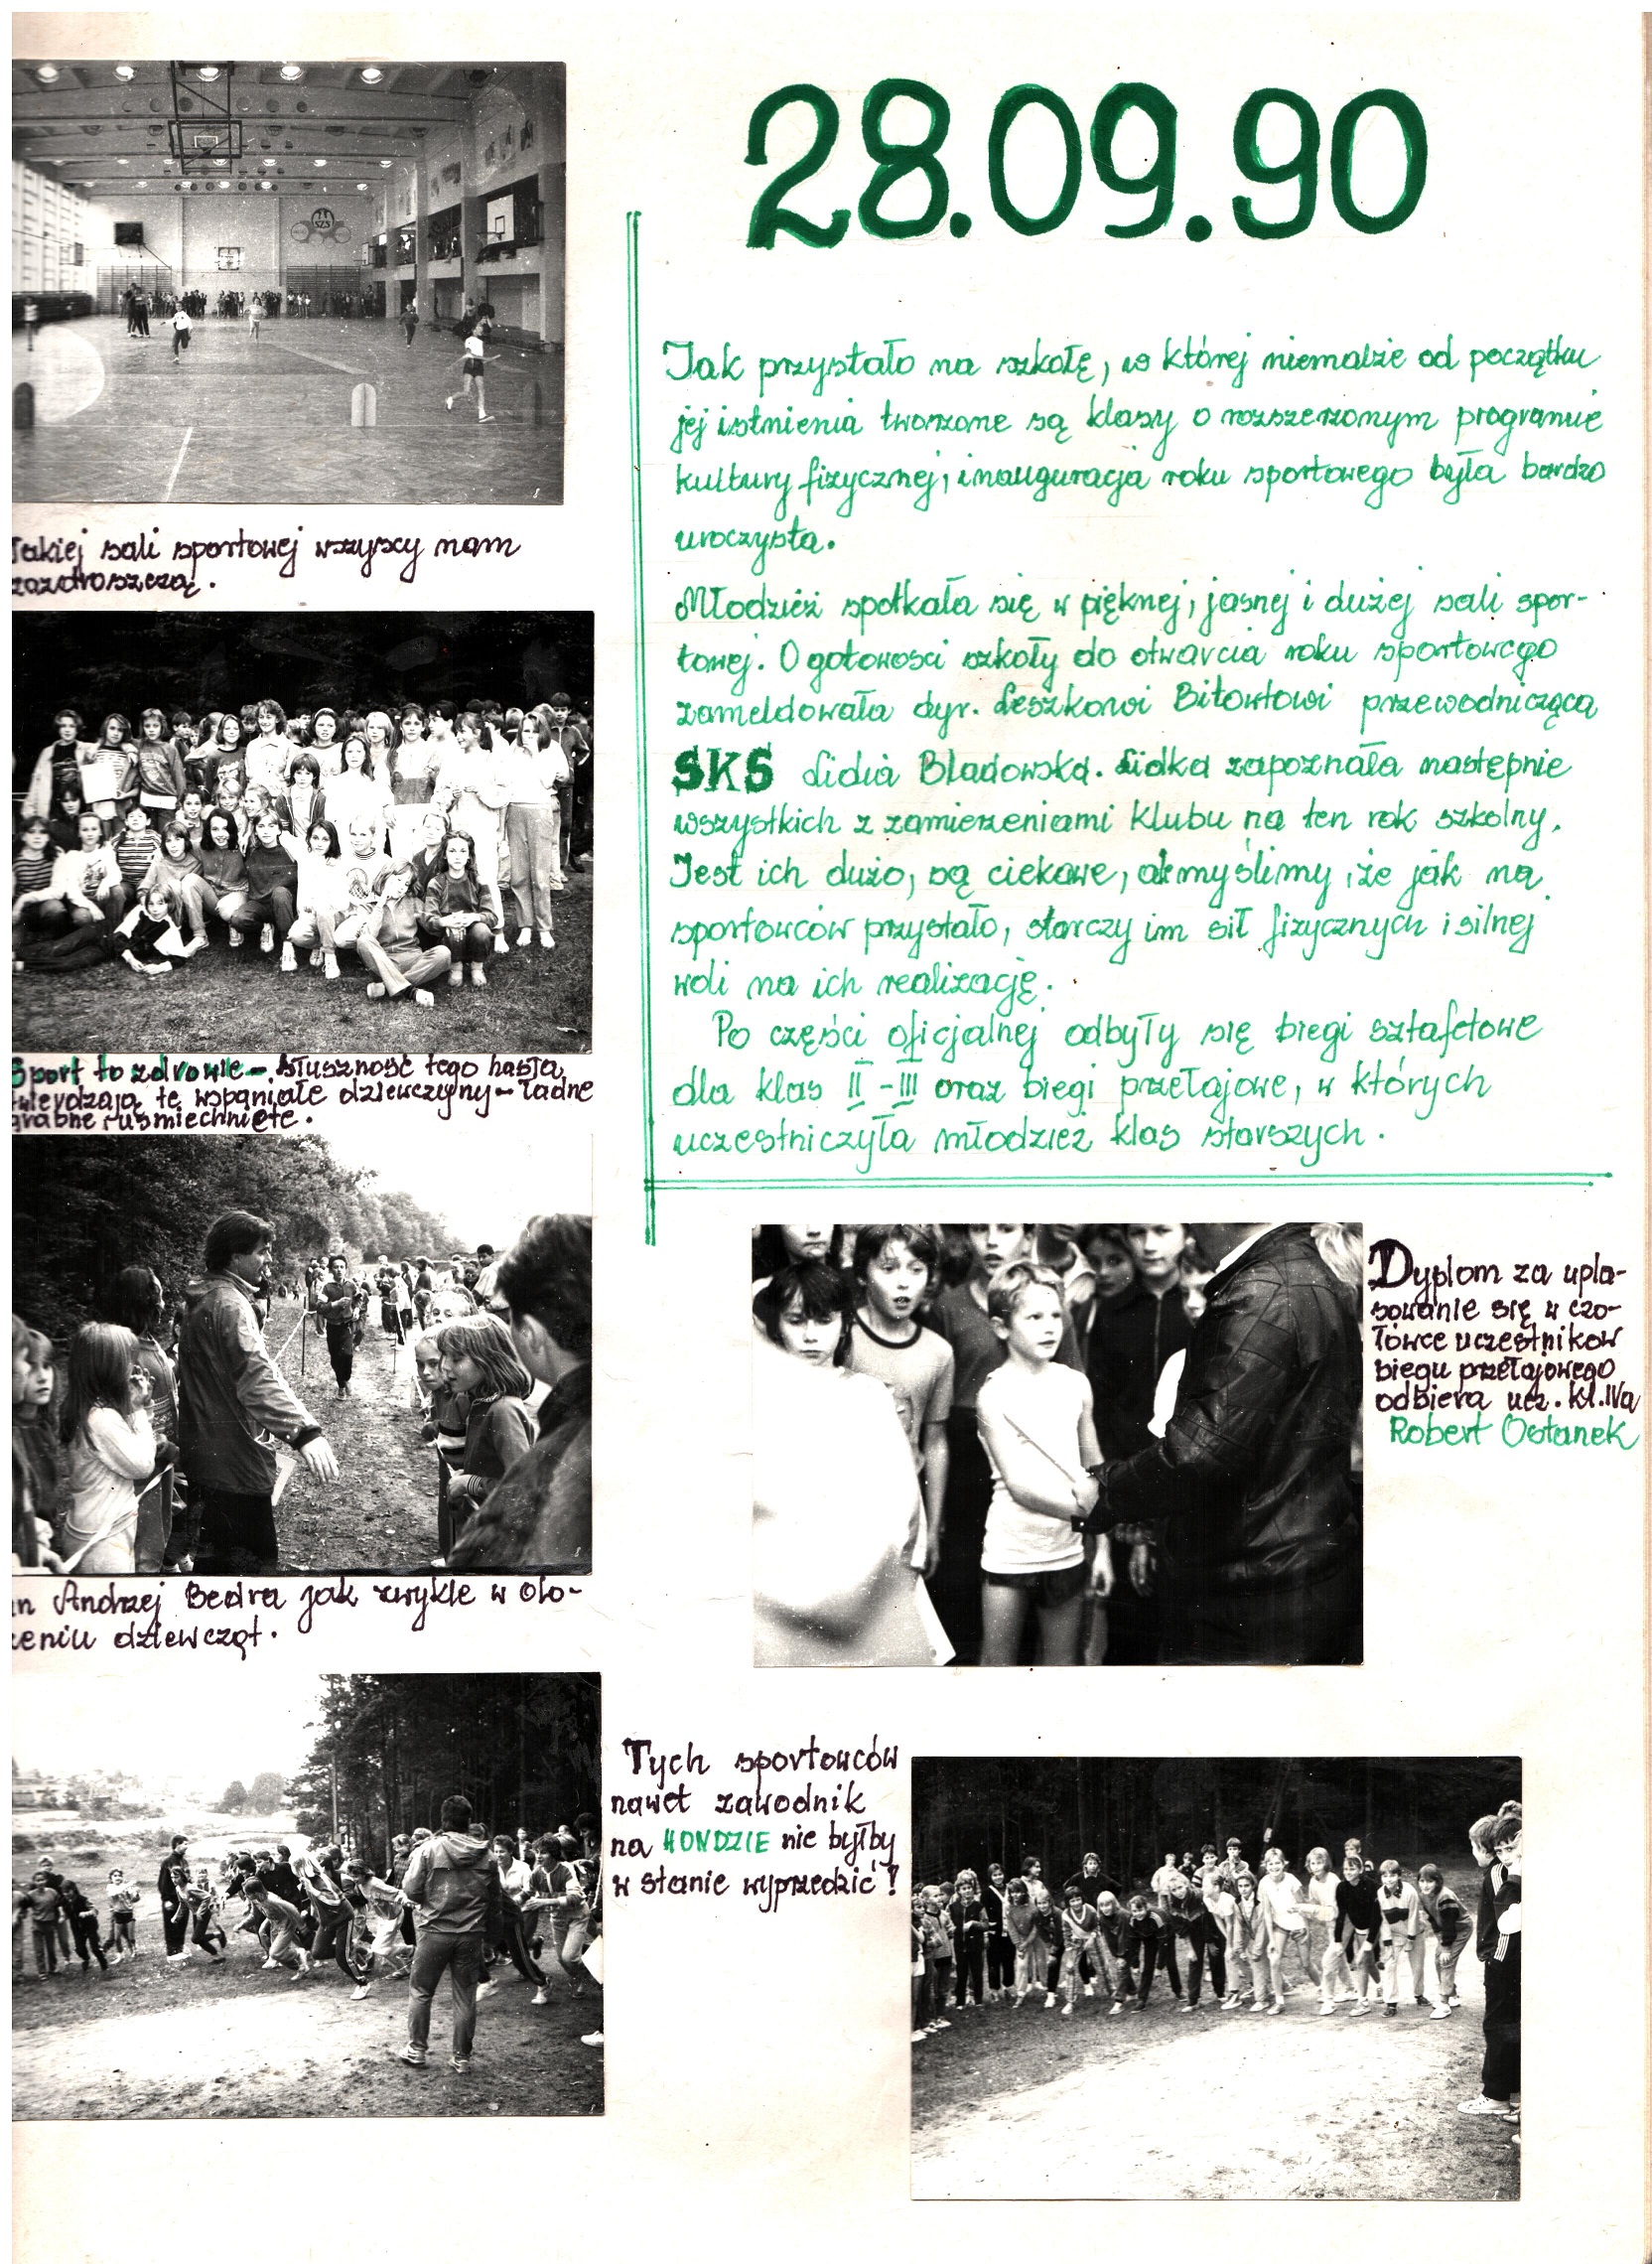 28.09.90
Jak przystało na szkołę, w której niemalże od początku
jej istnienia tworzone są klasy o rozszerzonym programie
kultury fizycznej, inauguracja roku sportowego była bardzo
uroczysta.
Młodzież spotkała się w pięknej, jasnej i dużej sali spor-
towej. O gotowości szkoły do otwarcia roku sportowego
zameldowała dyr. Leszkowi Biłowtowi przewodnicząca
SKS Lidia Bladowska. Lidka zapoznała następnie
wszystkich z zamierzeniami Klubu na ten rok szkolny.
Jest ich dużo, są ciekawe, ale myślimy, że jak na
sportowców przystało, starczy im sił fizycznych i silnej
woli na ich realizację.
Po części oficjalnej odbyły się biegi sztafetowe
dla klas II - III oraz biegi przełajowe, w których
uczestniczyła młodzież klas starszych.
Takiej sali sportowej wszyscy nam
zazdroszczą.
Sport to zdrowie - słuszność tego hasła
twierdzają te wspaniałe dziewczyny - ładne
grabne i uśmiechnięte.
an Andrzej Bedra jak zwykle w oto-
czeniu dziewcząt.
Dyplom za upla-
sowanie się w czo-
łówce uczestników
biegu przełajowego
odbiera ucz. kl. IVa
Robert Ostanek
Tych sportowców
nawet zawodnik
na HONDZIE nie byłby
w stanie wyprzedzić!